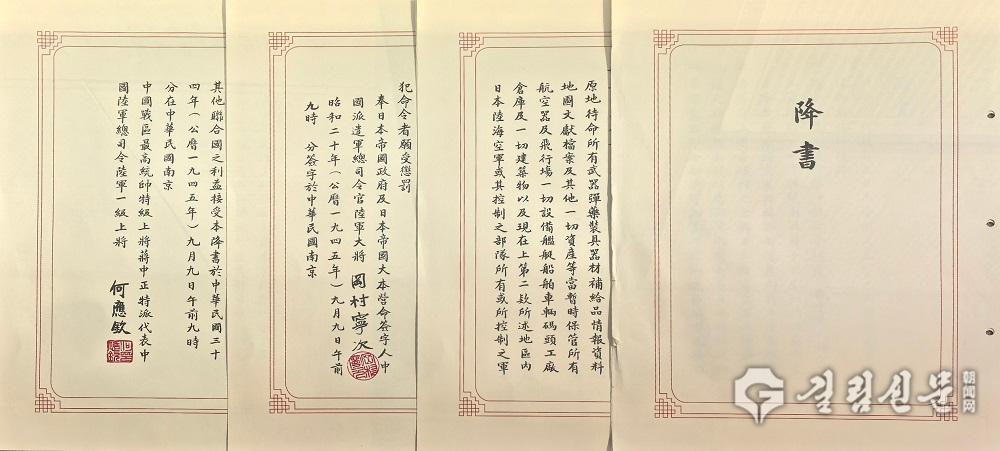 降書
原地待命所有武器彈藥裝具器材補給品情報資料
地圖文獻檔案及其他一切資產等當暫時保管所有
航空器及飛行場一切設備艦艇船舶車輛碼頭工廠
倉庫及一切建築物以及現在上第二欵所述地區內
日本陸海空軍或其控制之部隊所有或所控制之軍
犯命令者願受懲罰
奉日本帝國政府及日本帝國大本營命簽字人中
國派遣軍總司令官陸軍大將 岡村寧次
昭和二十年（公曆一九四五年）九月九日午前
九時 分簽字於中華民國南京
其他聯合國之利益接受本降書於中華民國三十
四年（公曆一九四五年）九月九日午前九時
分在中華民國南京
中國戰區最高統帥特級上將蔣中正特派代表中
國陸軍總司令陸軍一級上將
何應欽
길림신문
朝闻网